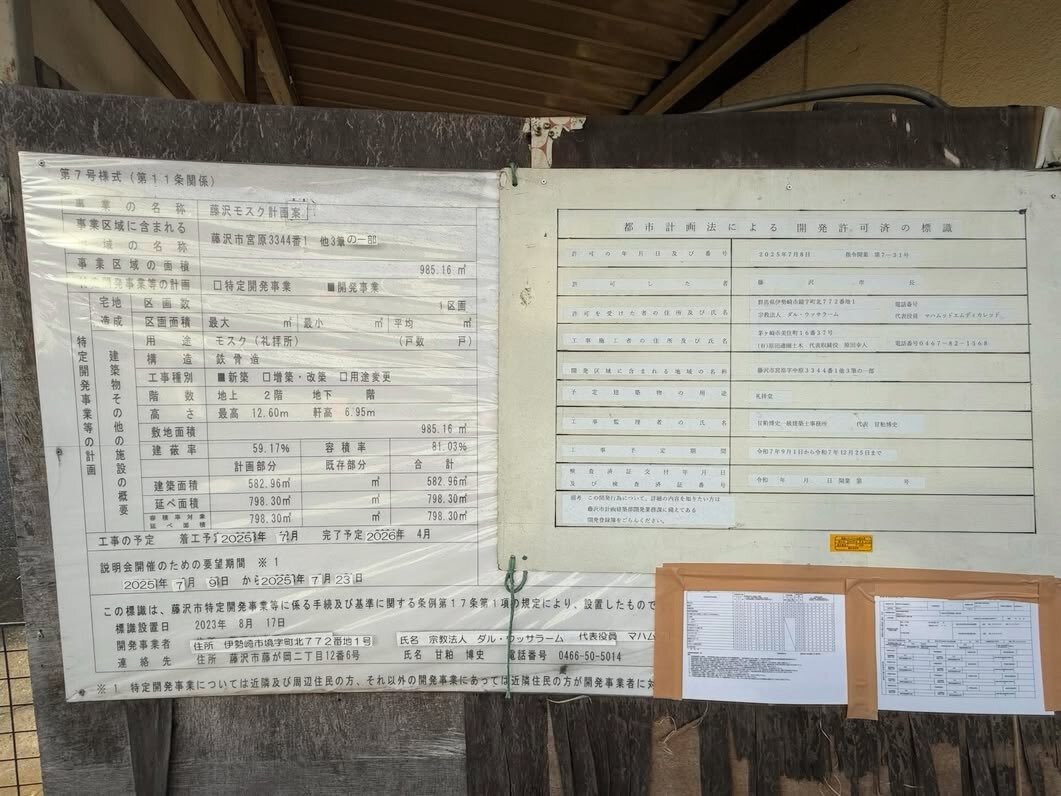 第7号様式(第11条関係)
事業の名称 藤沢モスク計画案
事業区域に含まれる
域の名称 藤沢市宮原3344番1 他3筆の一部
事業区域の面積 985.16 ㎡
開発事業等の計画 □特定開発事業 ■開発事業
特定開発事業等の計画
宅地造成 区画数 1区画
区画面積 最大 ㎡ 最小 ㎡ 平均 ㎡
建築物その他の施設の概要
用途 モスク(礼拝所) (戸数 戸)
構造 鉄骨造
工事種別 ■新築 □増築・改築 □用途変更
階数 地上 2階 地下 階
高さ 最高 12.60m 軒高 6.95m
敷地面積 985.16 ㎡
建蔽率 59.17% 容積率 81.03%
計画部分 既存部分 合計
建築面積 582.96㎡ ㎡ 582.96㎡
延べ面積 798.30㎡ ㎡ 798.30㎡
容積率対象延べ面積 798.30㎡ ㎡ 798.30㎡
工事の予定 着工予定 2025年 月 完了予定 2026年 4月
説明会開催のための要望期間 ※1
2025年 7月 9日 から 2025年 7月 23日
この標識は、藤沢市特定開発事業等に係る手続及び基準に関する条例第17条第1項の規定により、設置したもので
標識設置日 2023年 8月 17日
開発事業者 住所 伊勢崎市境字町北772番地1号 氏名 宗教法人 ダル・ウッサラーム 代表役員 マハム
連絡先 住所 藤沢市藤が岡二丁目12番6号 氏名 甘粕 博史 電話番号 0466-50-5014
※1 特定開発事業については近隣及び周辺住民の方、それ以外の開発事業にあっては近隣住民の方が開発事業者に対
都市計画法による 開発許可済の標識
許可の年月日及び番号 2025年7月8日 指令開業 第7-31号
許可した者 藤沢市長
許可を受けた者の住所及び氏名 群馬県伊勢崎市境字町北772番地1 電話番号
宗教法人 ダル・ウッサラーム 代表役員 マハムッドエムディカレッド
工事施工者の住所及び氏名 茅ヶ崎市美住町16番37号
(有)原田造園土木 代表取締役 原田幸人 電話番号0467-82-1368
開発区域に含まれる地域の名称 藤沢市宮原字中原3344番1他3筆の一部
予定建築物の用途 礼拝堂
工事監理者の氏名 甘粕博史一級建築士事務所 代表 甘粕博史
工事予定期間 令和7年9月1日から令和7年12月25日まで
検査済証交付年月日
及び検査済証番号 令和 年 月 日 開業 第 号
備考 この開発行為について、詳細の内容を知りたい方は
藤沢市計画建築部開発業務課に備えてある
開発登録簿をごらんください。